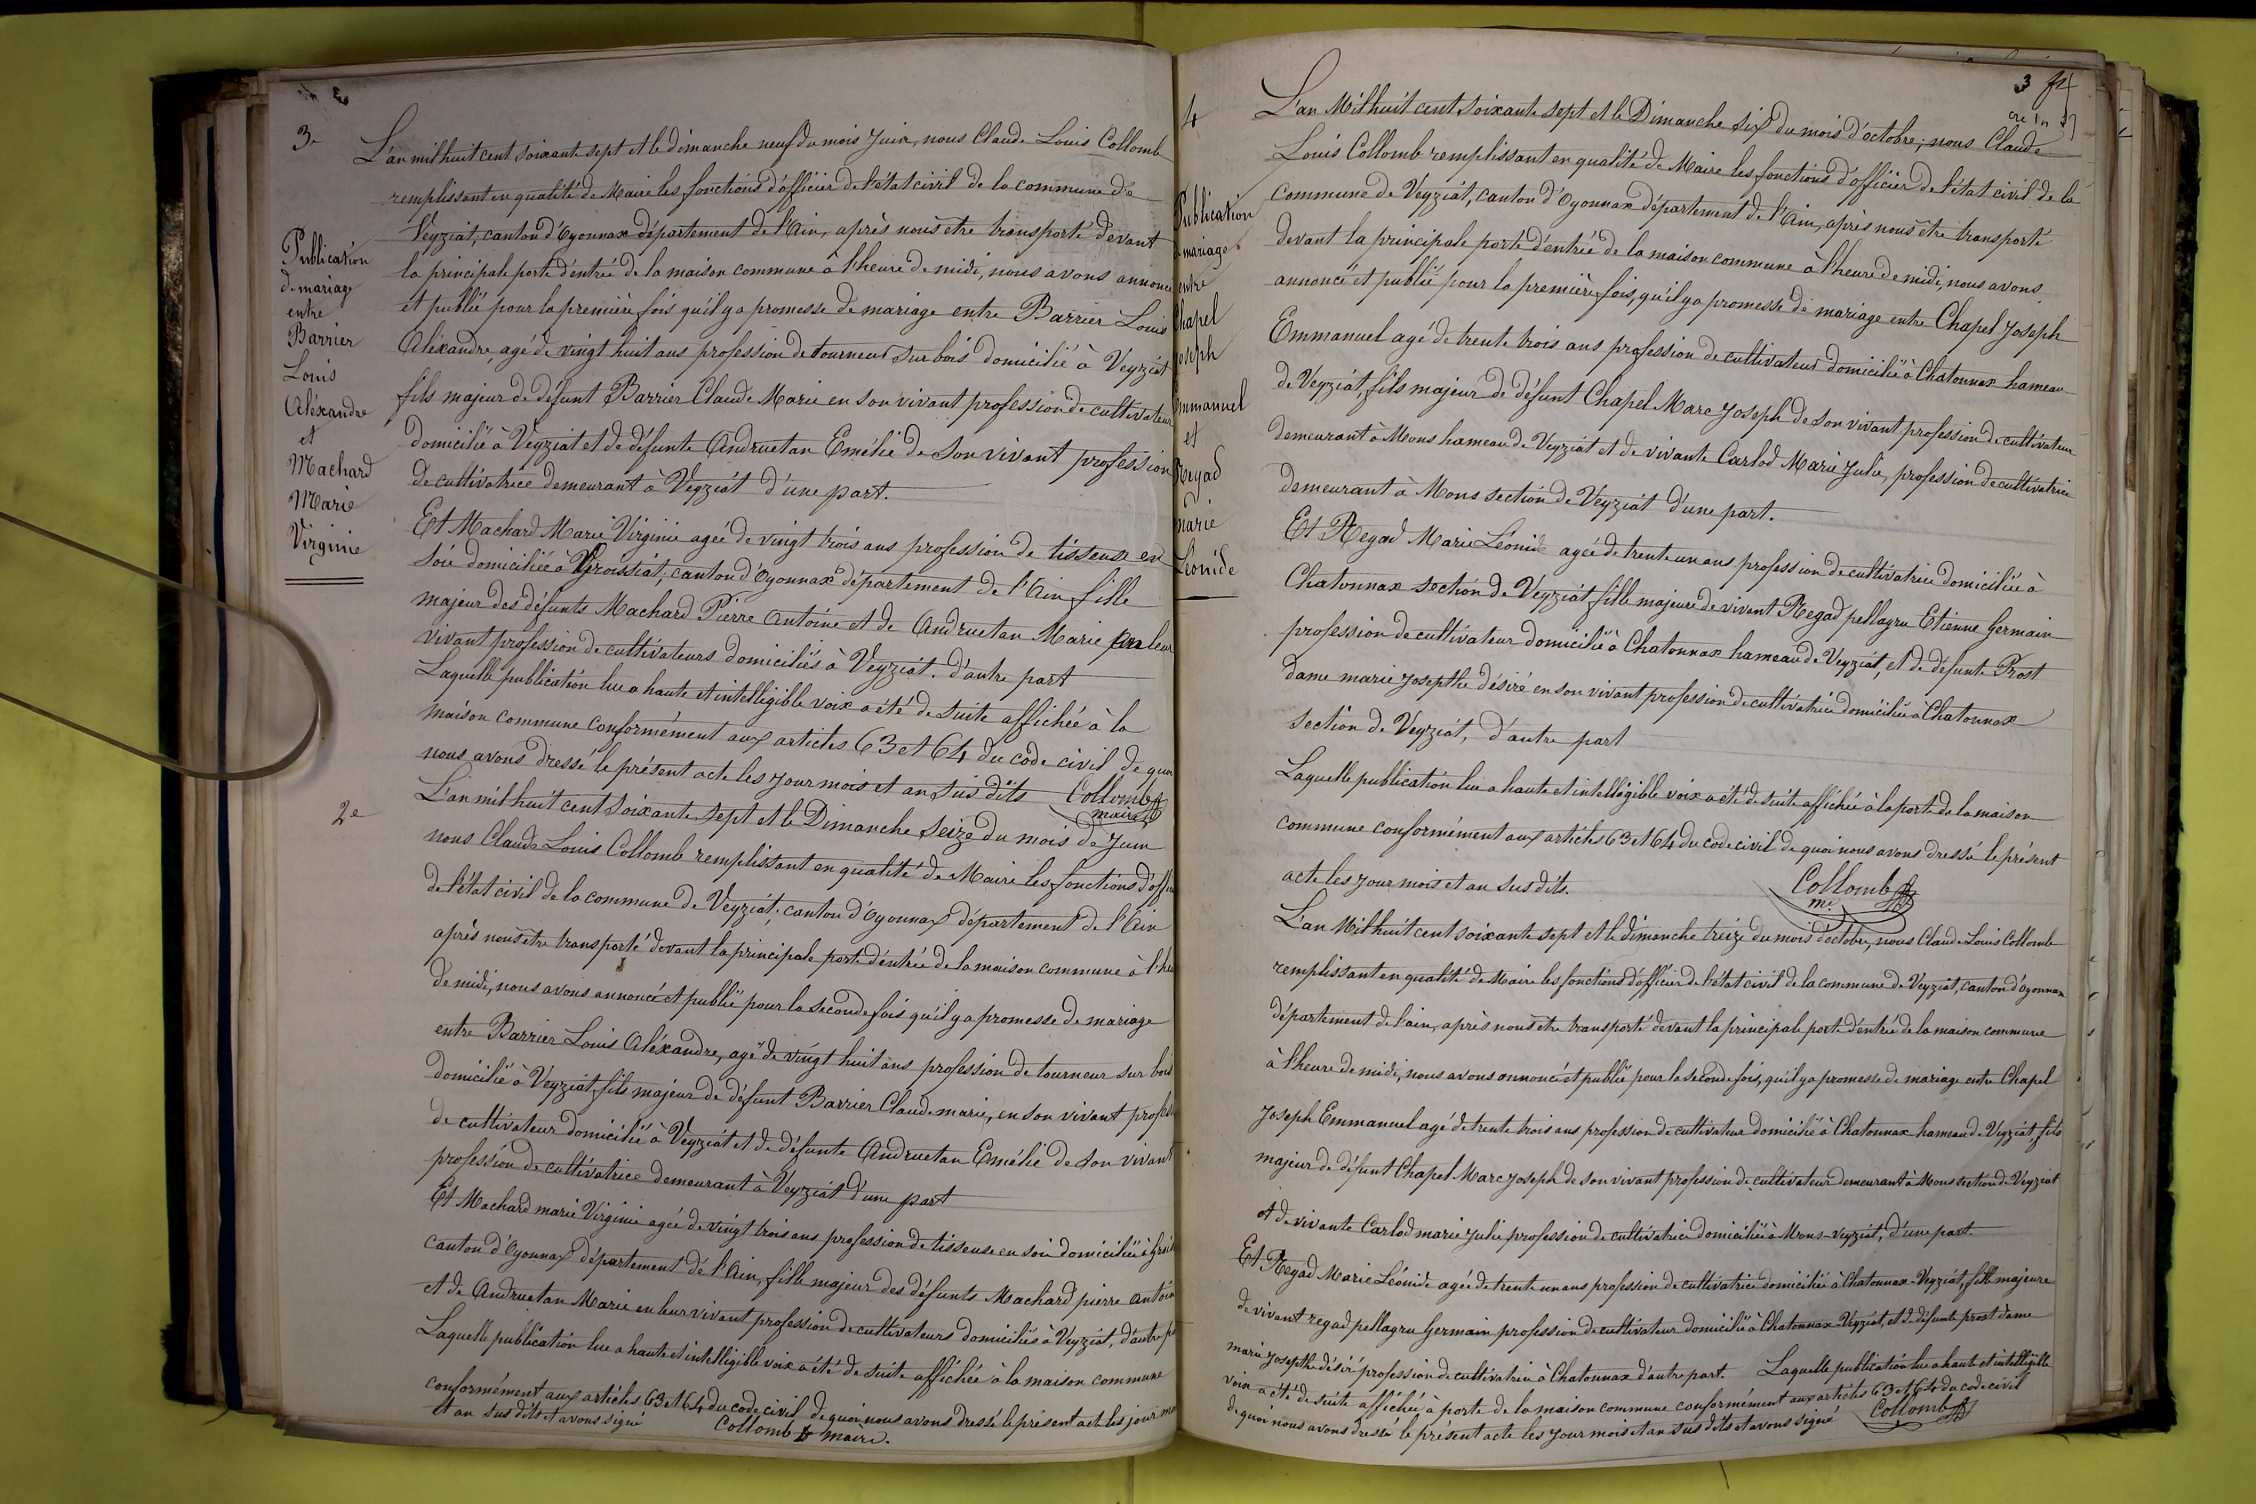 3e
Publication
de mariage
entre
Barrier
Louis
Aléxandre
et
Machard
Marie
Virginie
L'an mil huit cent soixante sept et le dimanche neuf du mois Juin, nous Claude Louis Collomb
remplissant en qualité de Maire les fonctions d'officier de l'état civil de la commune de
Veyziat, canton d'Oyonnax département de l'Ain, après nous être transporté devant
la principale porte d'entrée de la maison commune à l'heure de midi, nous avons annoncé
et publié pour la première fois qu'il y a promesse de mariage entre Barrier Louis
Aléxandre, agé de vingt huit ans profession de tourneur sur bois domicilié à Veyziat
fils majeur de défunt Barrier Claude Marie en son vivant profession de cultivateur
domicilié à Veyziat et de défunte Andruetan Emélie de son vivant profession
de cultivatrice demeurant à Veyziat d'une part.
Et Machard Marie Virginie agée de vingt trois ans profession de tisseuse en
soie domiciliée à Groissiat, canton d'Oyonnax département de l'Ain fille
majeur des défunts Machard Pierre Antoine et de Andruetan Marie en leur
vivant profession de cultivateurs domiciliés à Veyziat. d'autre part
Laquelle publication lue a haute et intelligible voix a été de suite affichée à la
maison commune conformément aux articles 63 et 64 du code civil de quoi
nous avons dressé le présent acte les jour mois et an sus dits Collomb
maire
2e
L'an mil huit cent soixante sept et le Dimanche seize du mois de Juin
nous Claude Louis Collomb remplissant en qualité de Maire les fonctions d'offi
de l'état civil de la commune de Veyziat, canton d'Oyonnax département de l'Ain
après nous être transporté devant la principale porte d'entrée de la maison commune à l'heu
de midi, nous avons annoncé et publié pour la seconde fois qu'il y a promesse de mariage
entre Barrier Louis Aléxandre, agé de vingt huit ans profession de tourneur sur bois
domicilié à Veyziat fils majeur de défunt Barrier Claude marie, en son vivant profess
de cultivateur domicilié à Veyziat et de défunte Andruetan Emélie de son vivant
profession de cultivatrice demeurant à Veyziat d'une part
Et Machard marie Virginie agée de vingt trois ans profession de tisseuse en soie domiciliée à Groi
canton d'Oyonnax département de l'Ain, fille majeur des défunts Machard pierre Antoin
et de Andruetan Marie en leur vivant profession de cultivateurs domiciliés à Veyziat, d'autre p
Laquelle publication lue a haute et intelligible voix a été de suite affichée à la maison commune
conformément aux articles 63 et 64 du code civil de quoi nous avons dressé le présent acte les jour mo
et an sus dits et avons signé Collomb maire.
3
4
Publication
mariage
entre
Chapel
Joseph
Emmanuel
et
Regad
marie
Léonide
L'an Mil huit cent soixante sept et le Dimanche six du mois d'octobre, nous Claude
Louis Collomb remplissant en qualité de Maire les fonctions d'officier de l'état civil de la
commune de Veyziat, canton d'Oyonnax département de l'Ain, après nous être transporté
devant la principale porte d'entrée de la maison commune à l'heure de midi, nous avons
annoncé et publié pour la première fois, qu'il y a promesse de mariage entre Chapel Joseph
Emmanuel agé de trente trois ans profession de cultivateur domicilié à Chatonnax hameau
de Veyziat, fils majeur de défunt Chapel Marc Joseph de son vivant profession de cultivateur
demeurant à Mons hameau de Veyziat et de vivante Carlod Marie Julie, profession de cultivatrice
demeurant à Mons section de Veyziat d'une part.
Et Regad Marie Léonide agée de trente un ans profession de cultivatrice domiciliée à
Chatonnax section de Veyziat fille majeure de vivant Regad pellagru Etienne Germain
profession de cultivateur domicilié à Chatonnax hameau de Veyziat, et de défunte Prost
dame marie Josepthe désiré en son vivant profession de cultivatrice domiciliée à Chatonnax
section de Veyziat, d'autre part
Laquelle publication lue a haute et intelligible voix a été de suite affichée à la porte de la maison
commune conformément aux articles 63 et 64 du code civil de quoi nous avons dressé le présent
acte les jour mois et an sus dits. Collomb
me
L'an Mil huit cent soixante sept et le dimanche treize du mois d'octobre, nous Claude Louis Collomb
remplissant en qualité de Maire les fonctions d'officier de l'état civil de la commune de Veyziat, canton d'Oyonnax
département de l'ain, après nous être transporté devant la principale porte d'entrée de la maison commune
à l'heure de midi, nous avons annoncé et publié pour la seconde fois, qu'il y a promesse de mariage entre Chapel
Joseph Emmanuel agé de trente trois ans profession de cultivateur domicilié à Chatonnax hameau de Veyziat, fils
majeur de défunt Chapel Marc Joseph de son vivant profession de cultivateur demeurant à Mons section de Veyziat
et de vivante Carlod marie Julie profession de cultivatrice domiciliée à Mons-veyziat, d'une part.
Et Regad Marie Léonide agée de trente un ans profession de cultivatrice domiciliée à Chatonnax-Veyziat, fille majeure
de vivant regad pellagru Germain profession de cultivateur domicilié à Chatonnax-Veyziat, et de défunte prost dame
marie Josepthe désiré profession de cultivatrice à Chatonnax d'autre part. Laquelle publication lue a haute et intelligible
voix a été de suite affichée à porte de la maison commune conformément aux articles 63 et 64 du code civil
de quoi nous avons dressé le présent acte les jour mois et an sus dits et avons signé Collomb